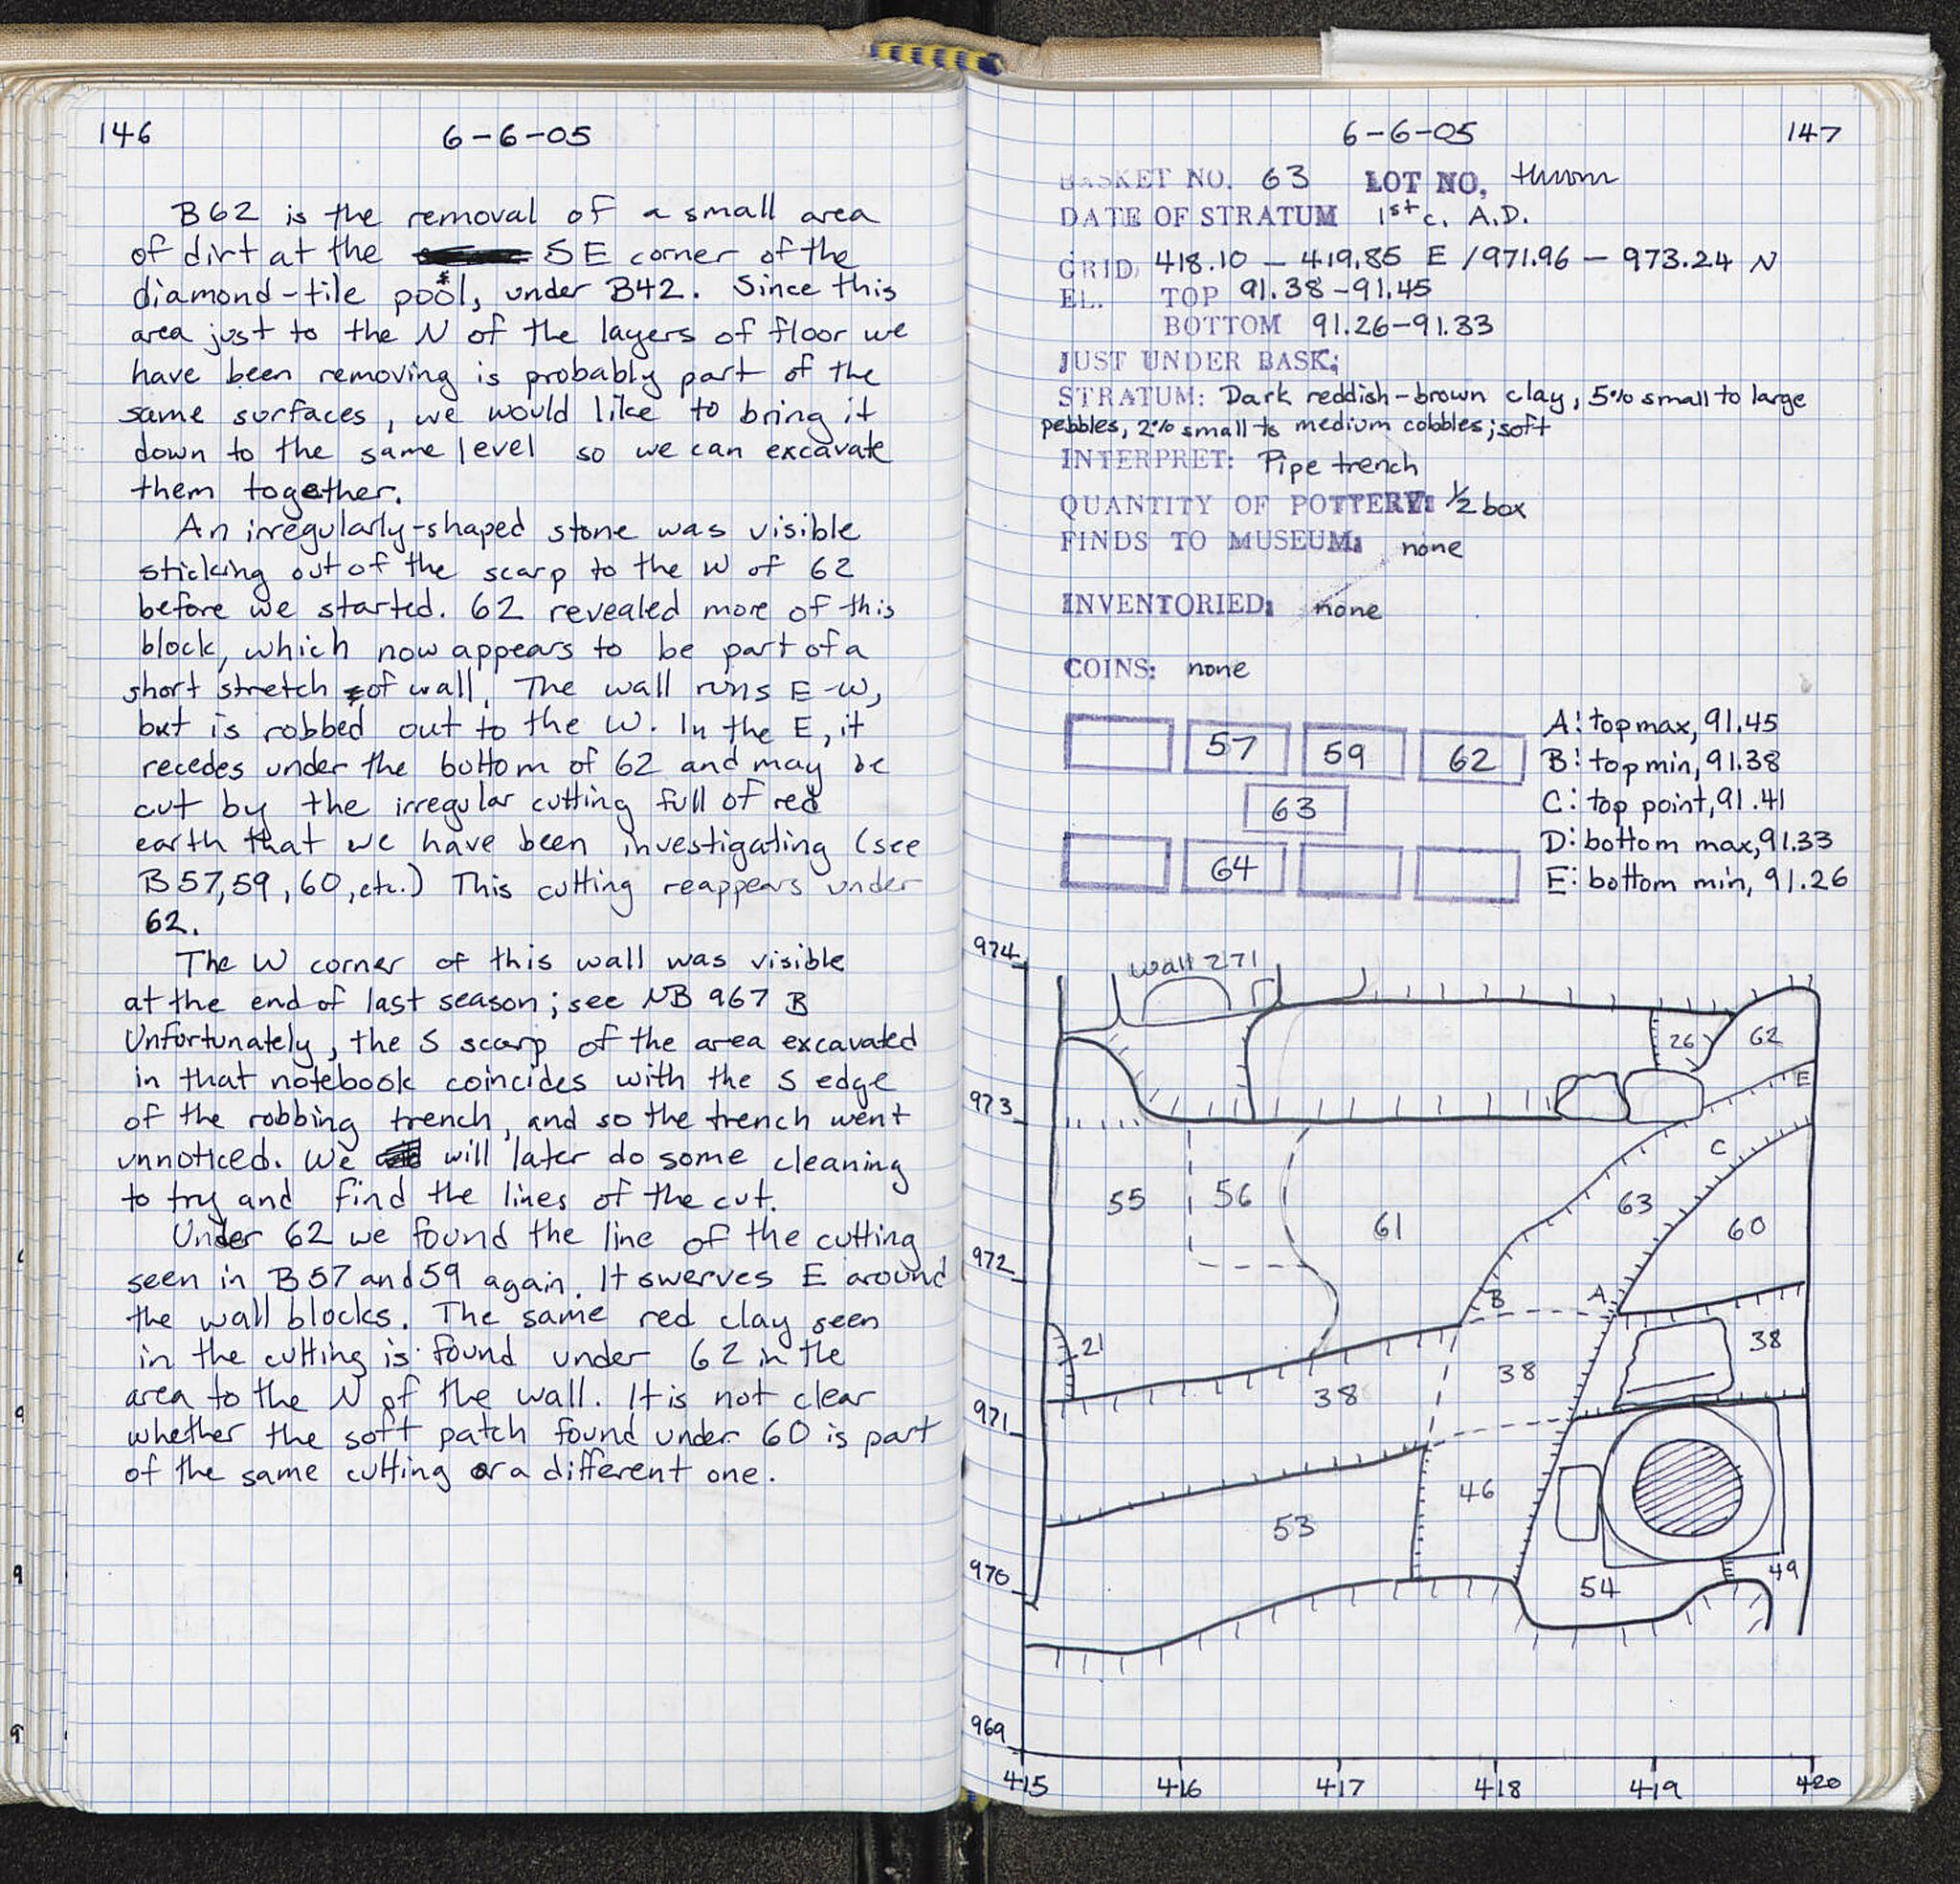 146
6-6-05
B62 is the removal of a small area
of dirt at the SE corner of the
diamond-tile pool, under B42. Since this
area just to the N of the layers of floor we
have been removing is probably part of the
same surfaces, we would like to bring it
down to the same level so we can excavate
them together.
An irregularly-shaped stone was visible
sticking out of the scarp to the W of 62
before we started. 62 revealed more of this
block, which now appears to be part of a
short stretch of wall. The wall runs E-W,
but is robbed out to the W. In the E, it
recedes under the bottom of 62 and may be
cut by the irregular cutting full of red
earth that we have been investigating (see
B57,59,60,etc.) This cutting reappears under
62.
The W corner of this wall was visible
at the end of last season; see NB 967 B
Unfortunately, the S scarp of the area excavated
in that notebook coincides with the S edge
of the robbing trench, and so the trench went
unnoticed. We will later do some cleaning
to try and find the lines of the cut.
Under 62 we found the line of the cutting
seen in B57 and 59 again. It swerves E around
the wall blocks. The same red clay seen
in the cutting is found under 62 in the
area to the N of the wall. It is not clear
whether the soft patch found under 60 is part
of the same cutting or a different one.
6-6-05
147
BASKET NO. 63 LOT NO. thrown
DATE OF STRATUM 1st c. A.D.
GRID: 418.10 - 419.85 E / 971.96 - 973.24 N
EL. TOP 91.38-91.45
BOTTOM 91.26-91.33
JUST UNDER BASK:
STRATUM: Dark reddish-brown clay, 5% small to large
pebbles, 2% small to medium cobbles; soft
INTERPRET: Pipe trench
QUANTITY OF POTTERY: 1/2 box
FINDS TO MUSEUM: none
INVENTORIED: none
COINS: none
57 59 62
63
64
A: top max, 91.45
B: top min, 91.38
C: top point, 91.41
D: bottom max, 91.33
E: bottom min, 91.26
974
Wall 271
26 62
E
973
C
55 56 61 63 60
972
B A
21 38 38 38
971
46
53
970
54 49
969
415 416 417 418 419 420